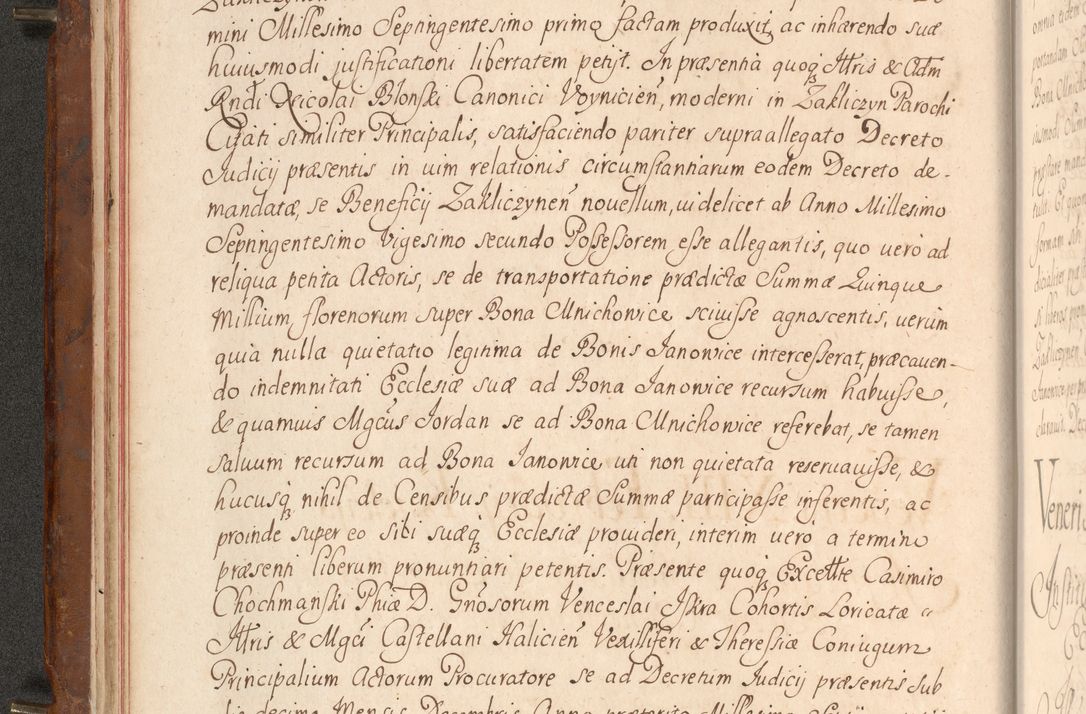 mini Millesimo Septingentesimo primo factam produxit, ac inhærendo suæ
huiusmodi justificationi libertatem petijt. In præsentia quoq3 Ittris & Adm
Rndi Nicolai Blonski Canonici Voynicien, moderni in Zakliczyn Parochi
Citati similiter Principalis, satisfaciendo pariter supraallegato Decreto
Judicij præsentis in uim relationis circumstantiarum eodem Decreto de-
mandatæ, se Beneficij Zakliczynen nouellum, uidelicet ab Anno Millesimo
Septingentesimo Vigesimo secundo Possessorem esse allegantis, quo uero ad
reliqua petita Actoris, se de transportatione prædictæ Summæ Quinque
Millium florenorum super Bona Mnichowice sciuisse agnoscentis, uerum
quia nulla quietatio legitima de Bonis Janowice intercesserat, præcauen-
do indemnitati Ecclesiæ suæ ad Bona Janowice recursum habuisse,
& quamuis Mgcus Jordan se ad Bona Mnichowice referebat, se tamen
saluum recursum ad Bona Janowice uti non quietata reseruauisse, &
hucusq3 nihil de Censibus prædictæ Summæ participasse inferentis, ac
proinde super eo sibi suæq3 Ecclesiæ prouideri, interim uero a termino
præsenti liberum pronuntiari petentis. Præsente quoq3 Excellte Casimiro
Chochmanski Phiæ D. Gnosorum Venceslai Iskra Cohortis Loricatæ
Ittris & Mgci Castellani Halicien Vexilliferi & Theressiæ Coniugum
Principalium Actorum Procuratore se ad Decretum Judicij præsentis sub
die decima Mensis Decembris Anno præterito Millesimo
Veneri